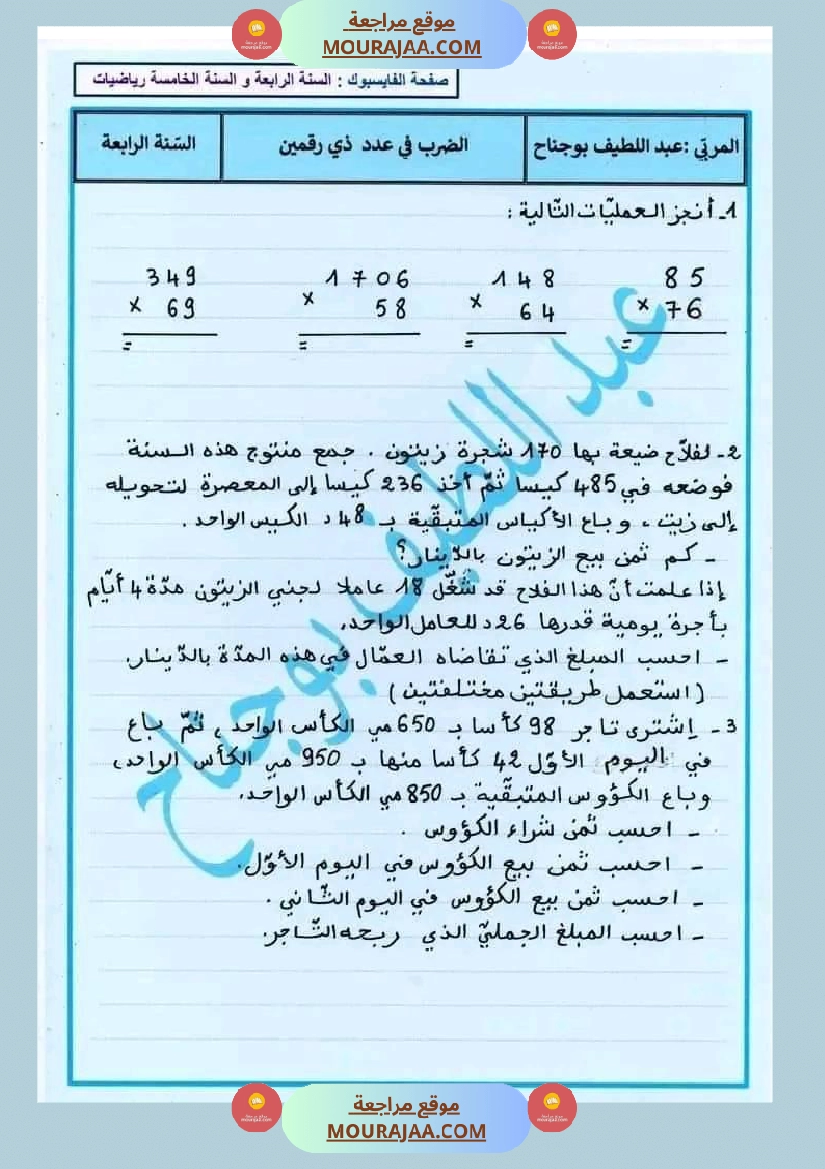 موقع مراجعة
MOURAJAA.COM
صفحة الفايسبوك : السنة الرابعة و السنة الخامسة رياضيات
المربّي :عبد اللطيف بوجناح
الضرب في عدد ذي رقمين
السّنة الرابعة
1ـ أنجز العمليّات التّالية :
85 148 1706 349
× 76 × 64 × 58 × 69
= = = =
2- لفلاّح ضيعة بها 170 شجرة زيتون . جمع منتوج هذه السنة
فوضعه في 485 كيسا ثمّ أخذ 236 كيسا إلى المعصرة لتحويله
إلى زيت ، وباع الأكياس المتبقّية بـ 48 د الكيس الواحد .
ـ كم ثمن بيع الزيتون بالدّينار؟
إذا علمت أنّ هذا الفلاح قد شغّل 18 عاملا لجني الزيتون مدّة 4 أيّام
بأجرة يومية قدرها 26 د للعامل الواحد.
ـ احسب المبلغ الذي تقاضاه العمّال في هذه المدّة بالدّينار.
( استعمل طريقتين مختلفتين )
3 - اِشترى تاجر 98 كأسا بـ 650 مي الكأس الواحد ، ثمّ باع
في اليوم الأوّل 42 كأسا منها بـ 950 مي الكأس الواحد،
وباع الكؤوس المتبقّية بـ 850 مي الكأس الواحد.
ـ احسب ثمن شراء الكؤوس .
ـ احسب ثمن بيع الكؤوس في اليوم الأوّل.
ـ احسب ثمن بيع الكؤوس في اليوم الثّاني .
ـ احسب المبلغ الجمليّ الذي ربحه التّاجر.
عبد اللطيف بوجناح
موقع مراجعة
MOURAJAA.COM